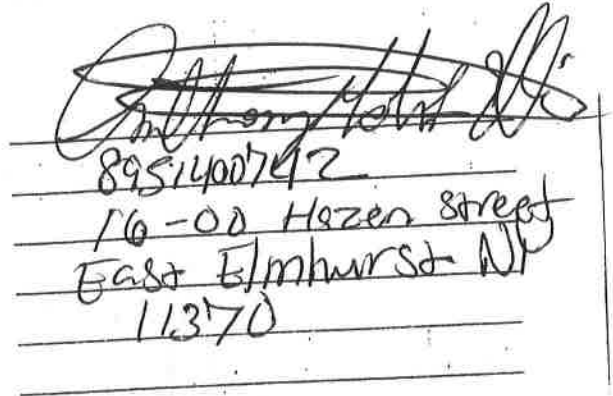 Anthony
8951400742
16-00 Hazen Street
East Elmhurst NY
11370